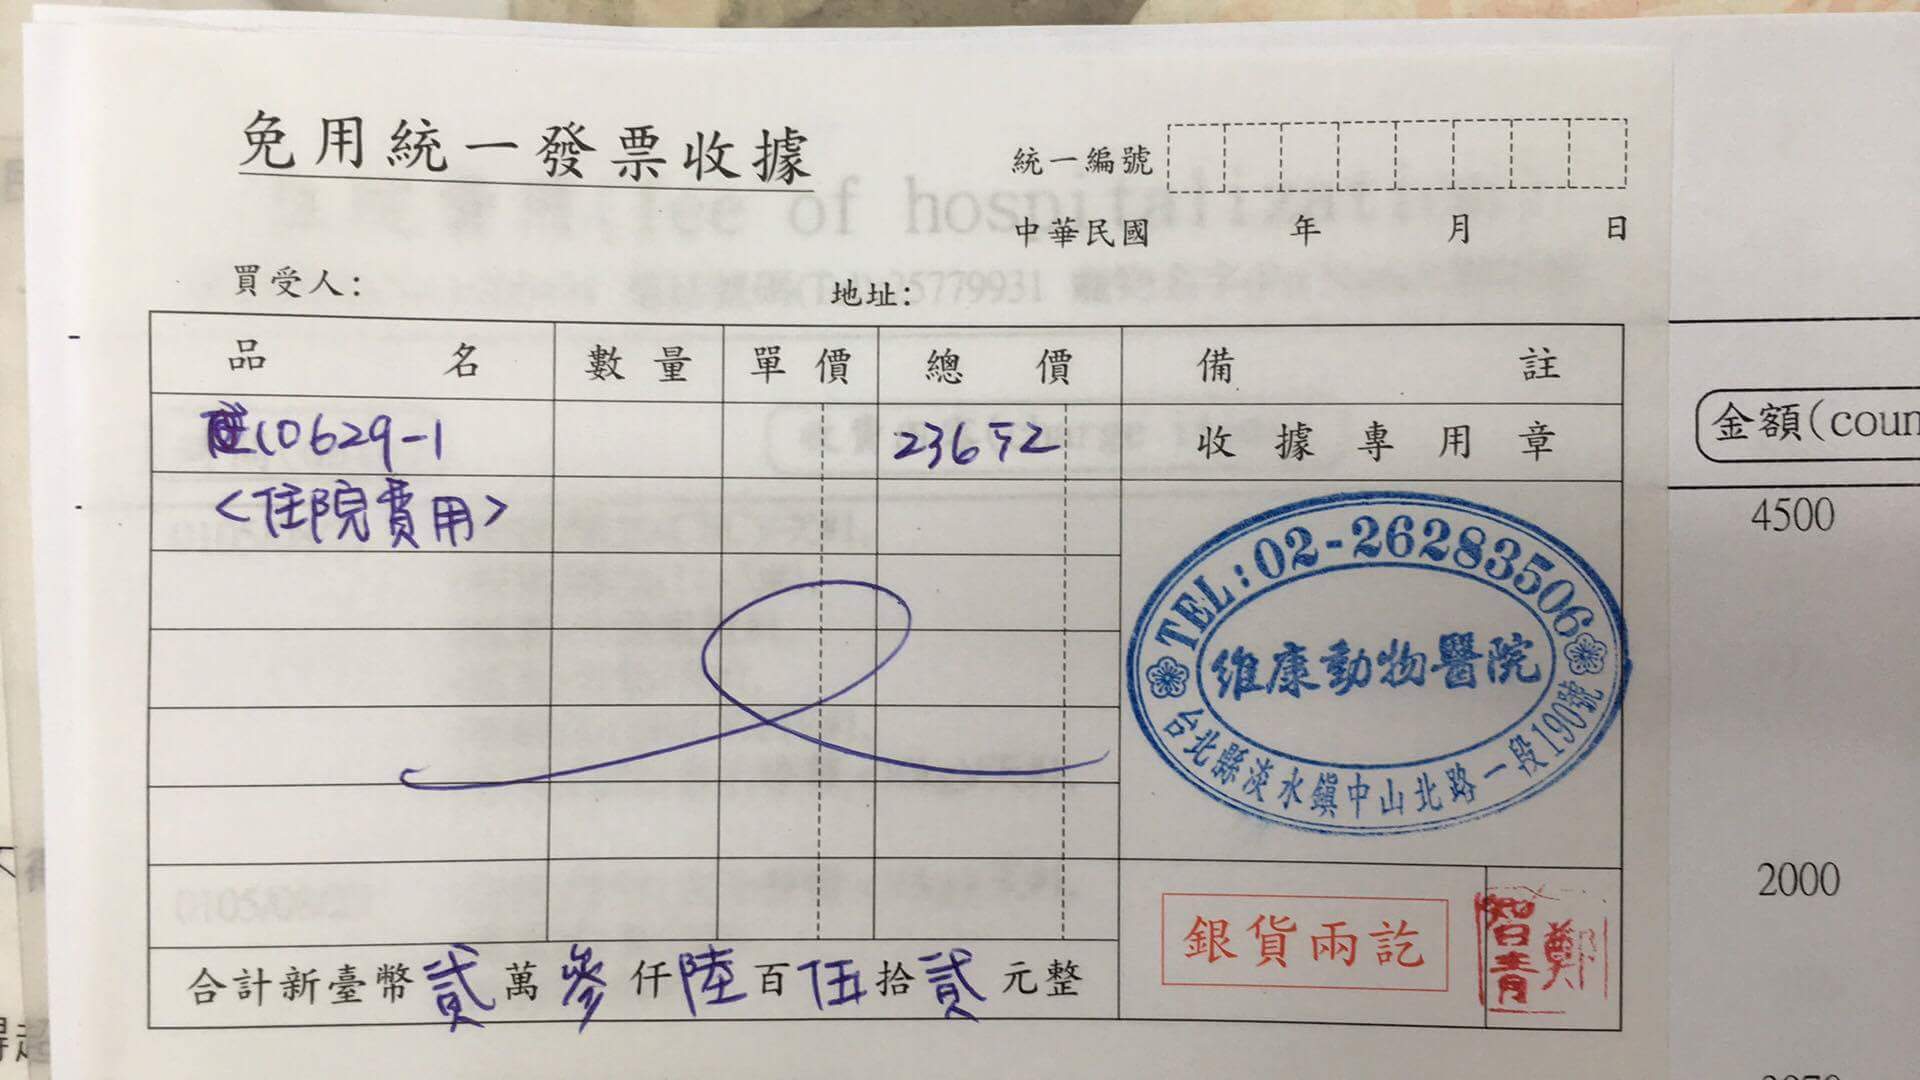 免用統一發票收據
統一編號
中華民國 年 月 日
買受人：
地址：
品名 數量 單價 總價 備註
10629-1 23652 收據專用章
<住院費用>
TEL:02-26283506
維康動物醫院
台北縣淡水鎮中山北路一段190號
合計新臺幣貳萬參仟陸百伍拾貳元整
銀貨兩訖
鄭智青
fee of hospitalization
35779931
金額(coun
4500
2000